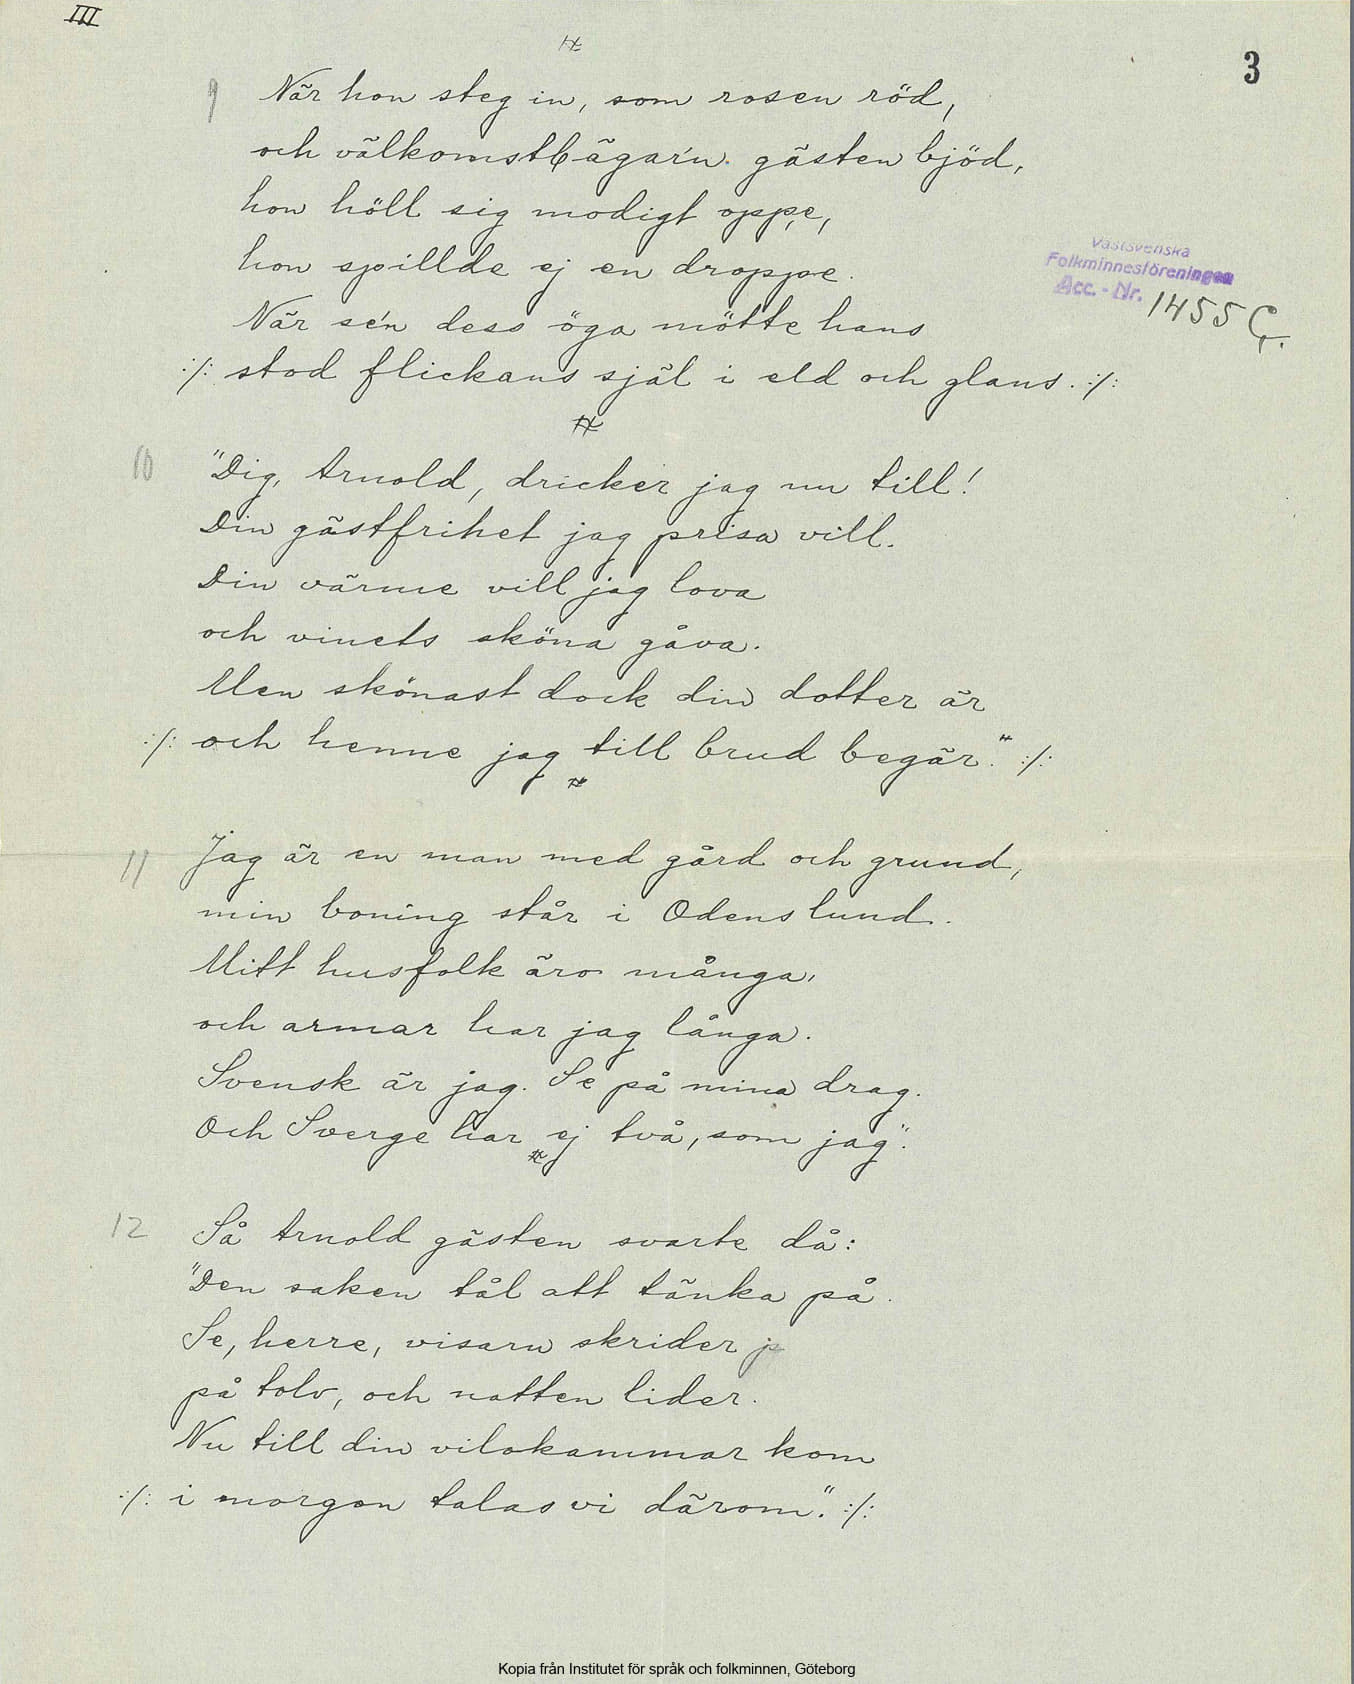 III
#
3
9 När hon steg in, som rosen röd,
och välkomstbägar'n gästen bjöd,
hon höll sig modigt oppe,
hon spillde ej en droppe.
När se'n dess öga mötte hans
:/: stod flickans själ i eld och glans. :/:
Västsvenska
Folkminnesföreningen
Acc. - Nr. 1455 G.
#
10 "Dig, Arnold, dricker jag nu till!
Din gästfrihet jag prisa vill.
Din värme vill jag lova
och vinets sköna gåva.
Men skönast dock din dotter är
:/: och henne jag till brud begär." :/:
#
11 Jag är en man med gård och grund,
min boning står i Odenslund.
Mitt husfolk äro många,
och armar har jag långa.
Svensk är jag. Se på mina drag.
Och Sverge har ej två, som jag".
#
12 Så Arnold gästen svarte då:
"Den saken tål att tänka på.
Se, herre, visarn skrider
på tolv, och natten lider.
Nu till din vilokammar kom
:/: i morgon talas vi därom." :/:
Kopia från Institutet för språk och folkminnen, Göteborg